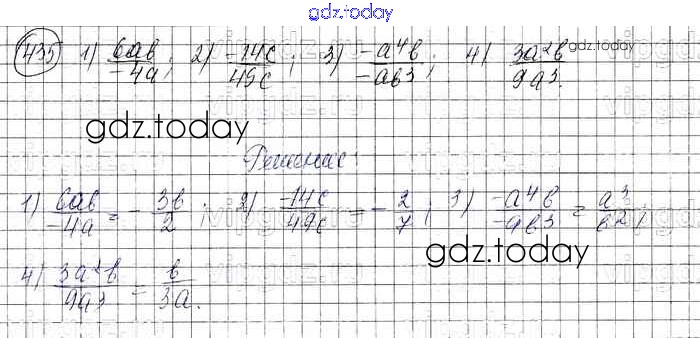 gdz.today
435 1) 6ab/-4a; 2) -14c/49c; 3) -a⁴b/-ab³; 4) 3a²b/9a³.
gdz.today
gdz.today
Решение:
1) 6ab/-4a = -3b/2; 2) -14c/49c = -2/7; 3) -a⁴b/-ab³ = a³/b²;
gdz.today
4) 3a²b/9a³ = b/3a.